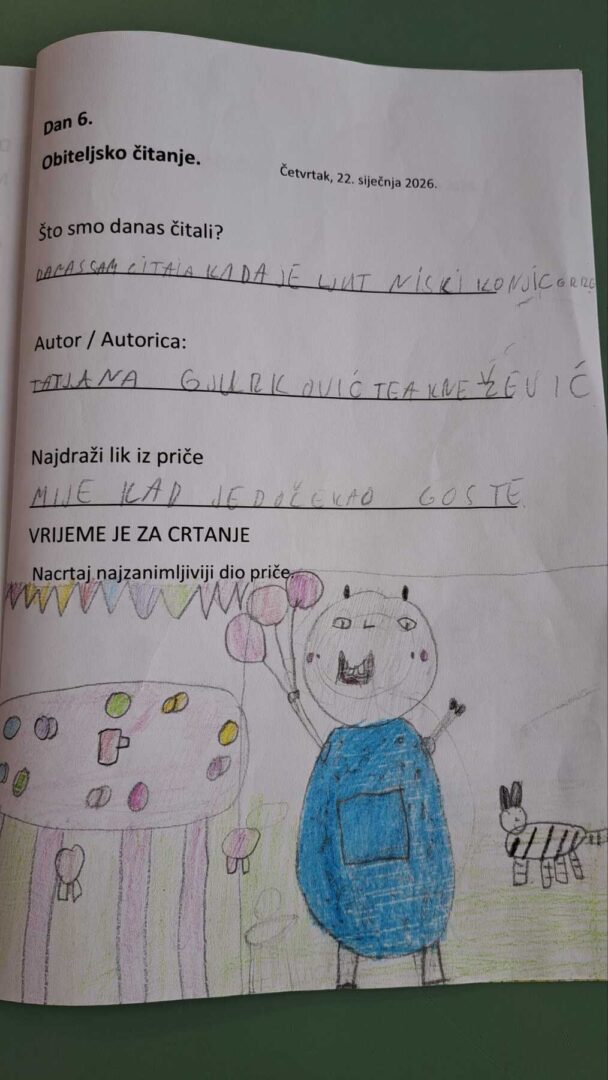 Dan 6.
Obiteljsko čitanje.
Četvrtak, 22. siječnja 2026.
Što smo danas čitali?
DANAS SAM ČITALA KADA JE LJUT NISKI KONJIC
Autor / Autorica:
TATJANA GJURKOVIĆ TEA KNEŽEVIĆ
Najdraži lik iz priče
MIJE KAD JE DOČEKAO GOSTE
VRIJEME JE ZA CRTANJE
Nacrtaj najzanimljiviji dio priče.